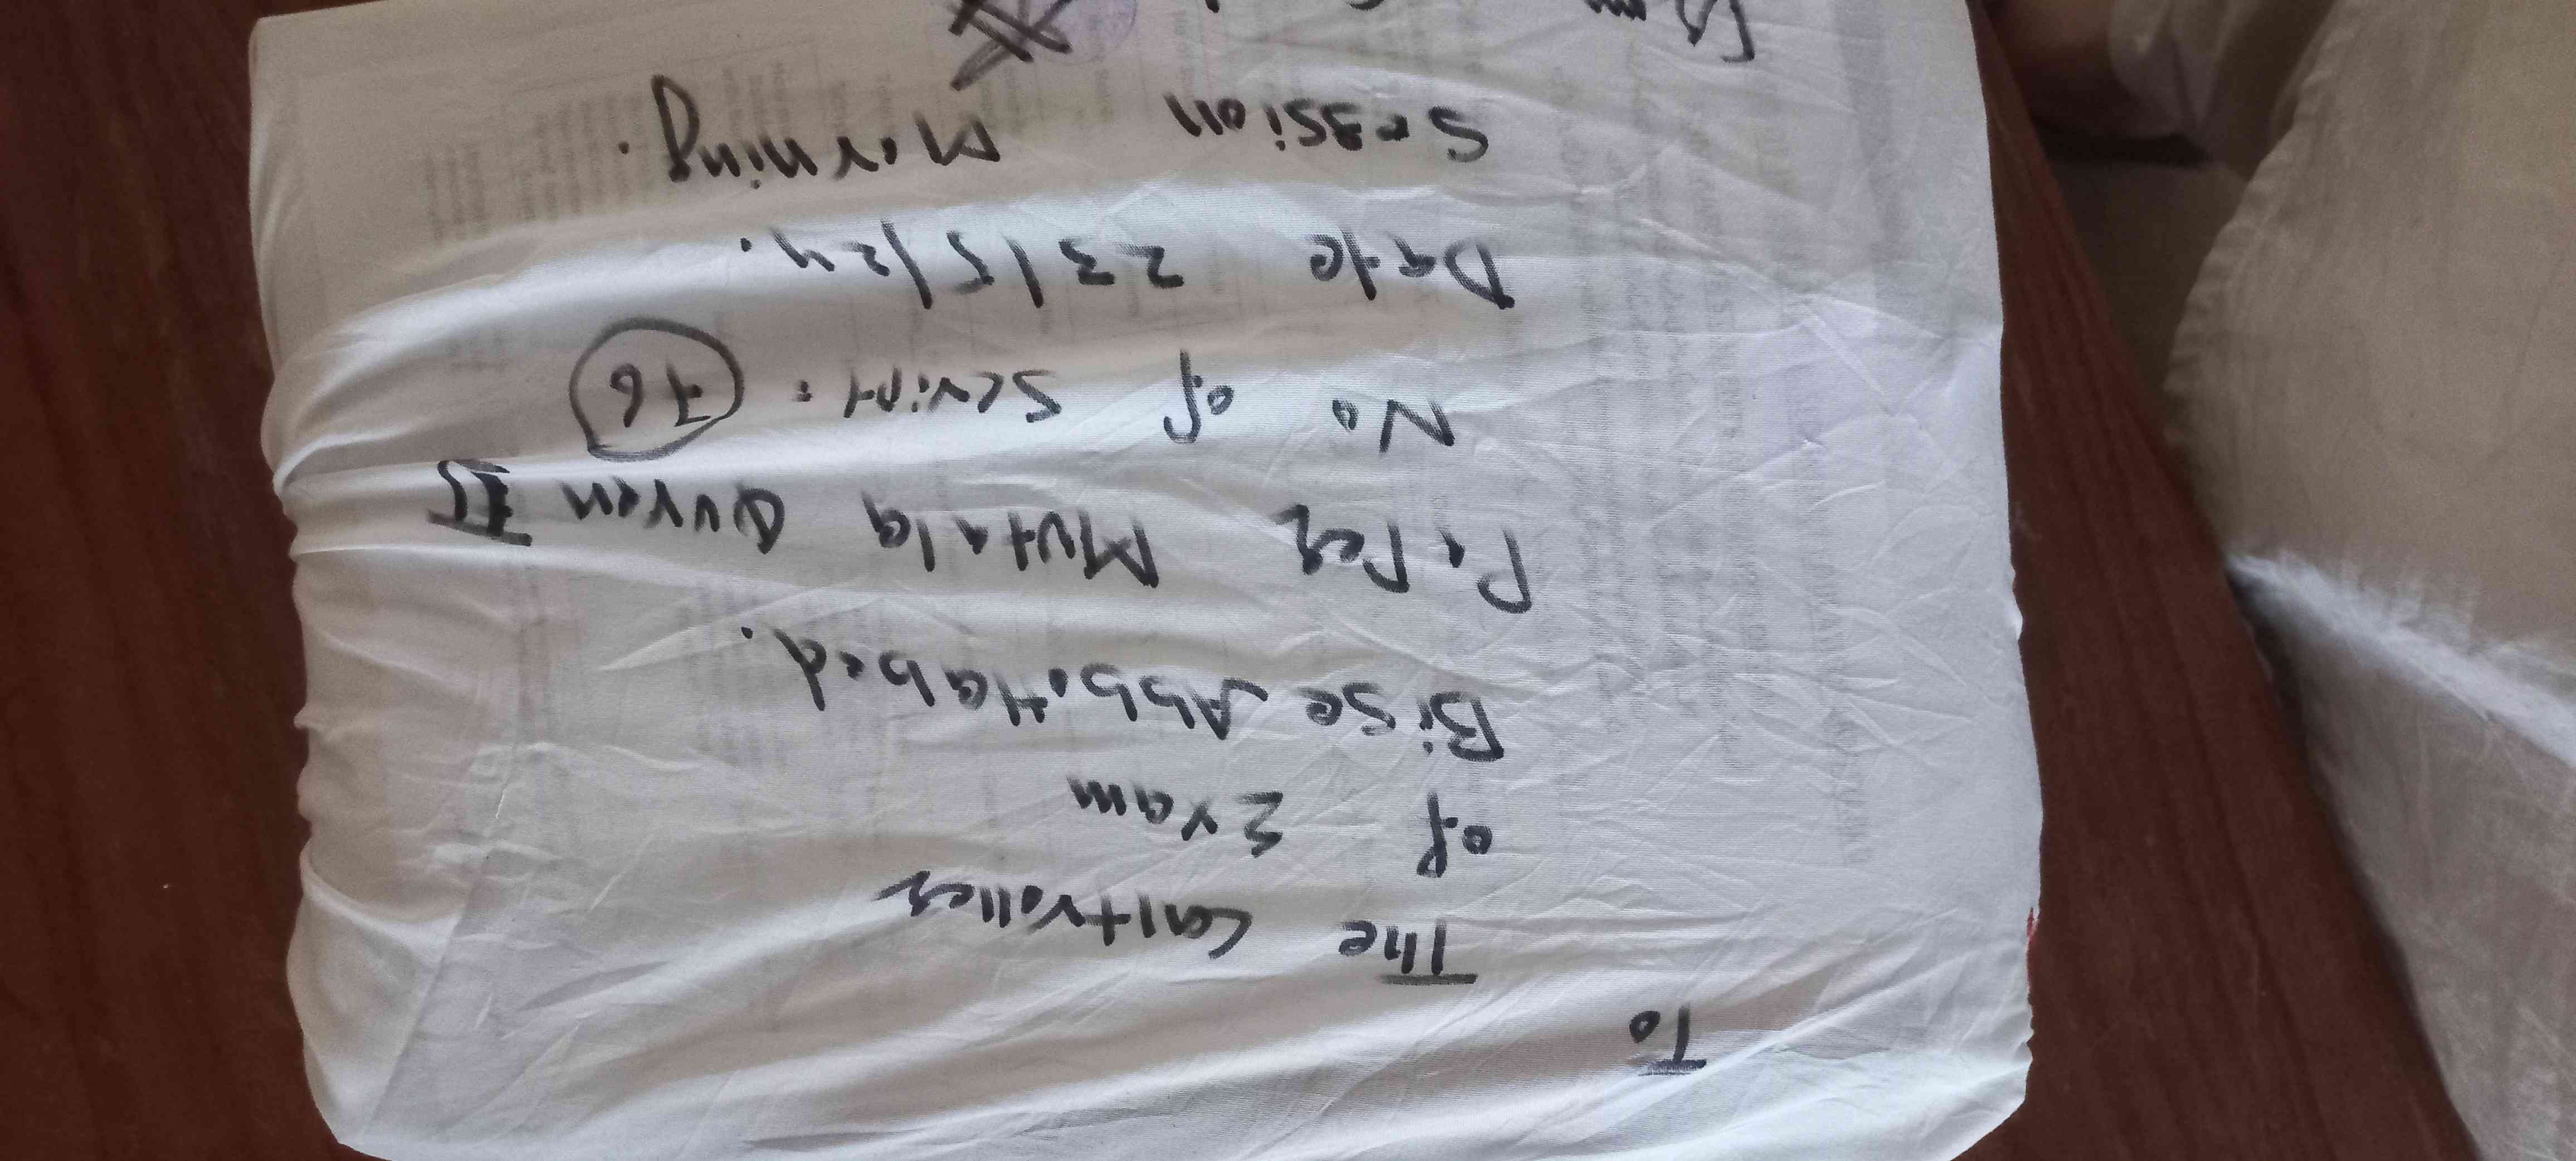 To
The Contvoller
of Exam
Bise Abbottabad.
PaPer Mutala Quran II
No of Script: 76
Date 23/5/24.
Session Morning.